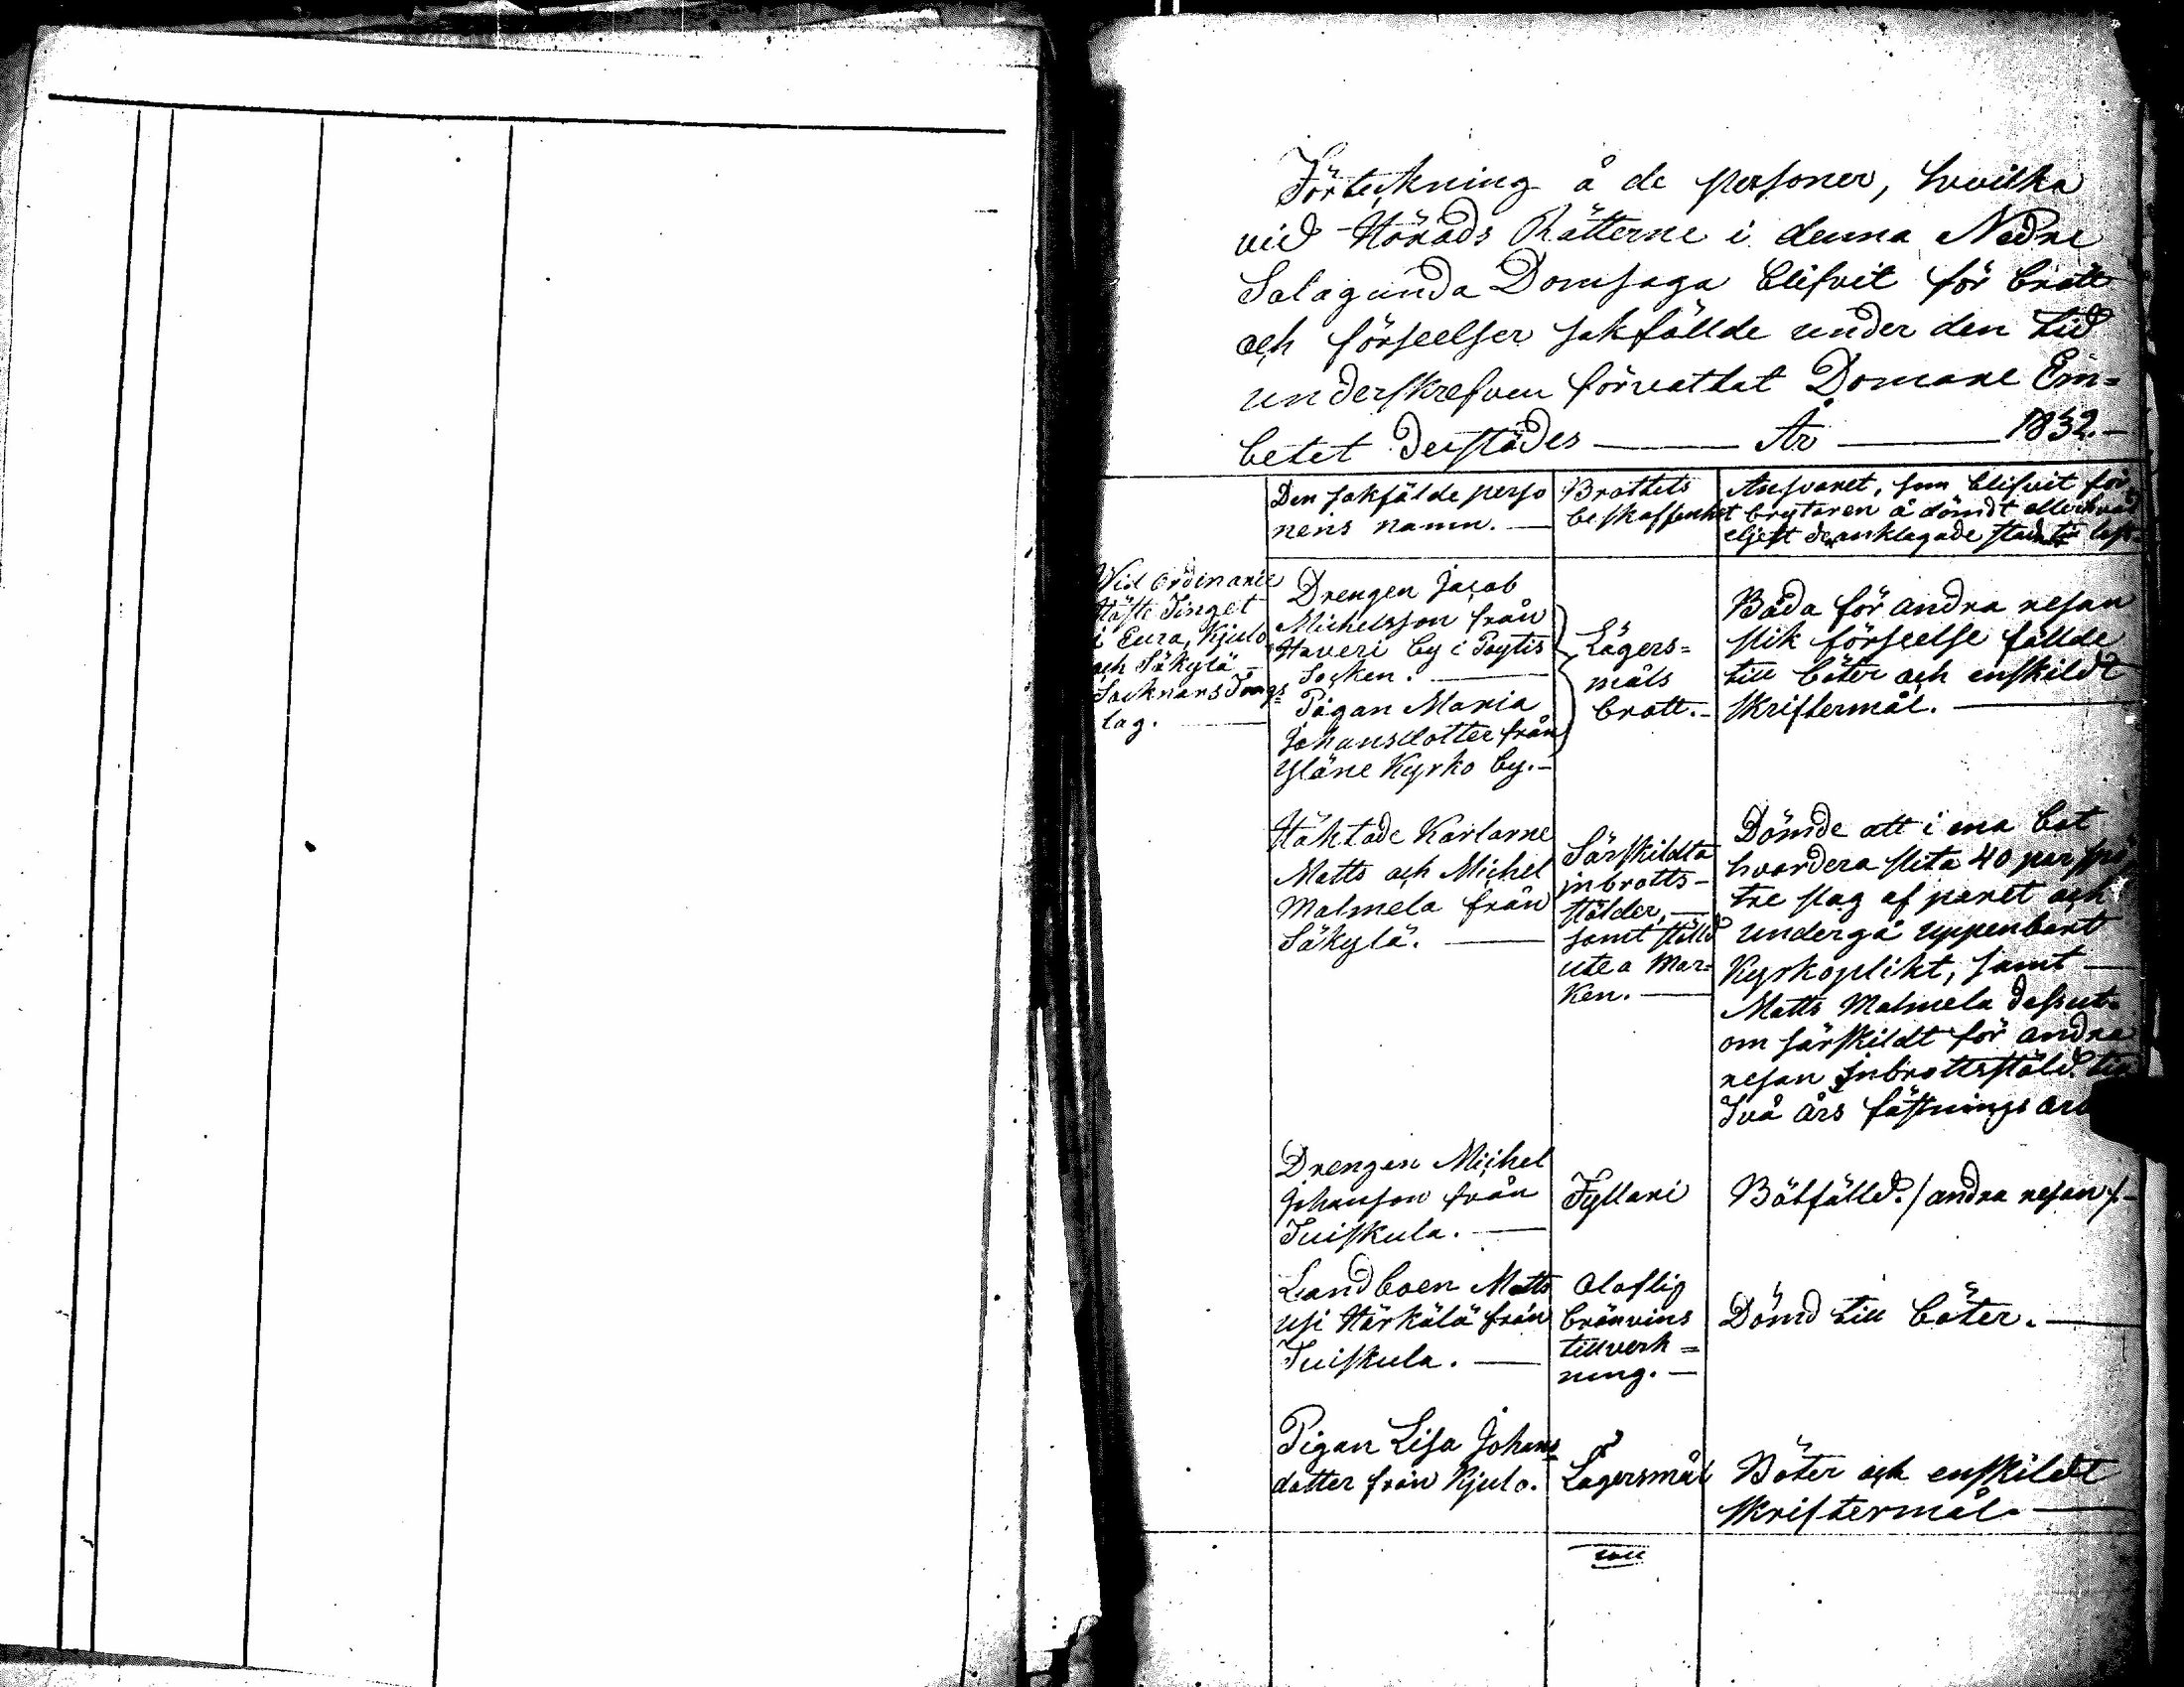 Förteckning å de personer, hvilka
vid Härads Rätterne i denna Nedre
Satagunda Domsaga blifvit för brott
och förseelser sakfällde under den tid
underskrefven förvaltat Domare Em=
betet derstädes — År — 1832.—
Den sakfälde perso
nens namn. —
Brottets
beskaffenhet
Ansvaret, som blifvit för
brytaren å dömdt eller hvad
eljest de anklagade stadt
Vid Ordinarie
Höste Tinget
i Eura, Kjulo
och Säkylä —
Socknars Tings=
lag. —
Drengen Jacob
Michelsson från
Haveri by i Pöytis
Socken. —
Pigan Maria
Johansdotter från
Yläne Kyrko by.—
Lägers=
måls
brott.—
Båda för andra resan
slik förseelse fällde
till böter och enskildt
skriftermål. —
Häktade Karlarne
Matts och Michel
Malmela från
Säkylä. —
Särskildta
inbrotts—
stölder, —
samt stöld
ute a mar=
ken. —
Dömde att i ena bot
hvardera slita 40 par spö
tre slag af paret och
undergå uppenbart
Kyrkoplikt, samt —
Matts Malmela dessut
om särskildt för andra
resan Inbrottsstöld till
Två års fästnings arb
Drengen Michel
Johansson från
Tuiskula. —
Fylleri
Bötfälld. / andra resan /.—
Landboen Matts
Usi Härkälä från
Tuiskula. —
Olaflig
bränvins
tillverk=
ning. —
Dömd till böter. —
Pigan Lisa Johans
dotter från Kjulo.
Lägersmål
Böter och enskildt
skriftermål. —